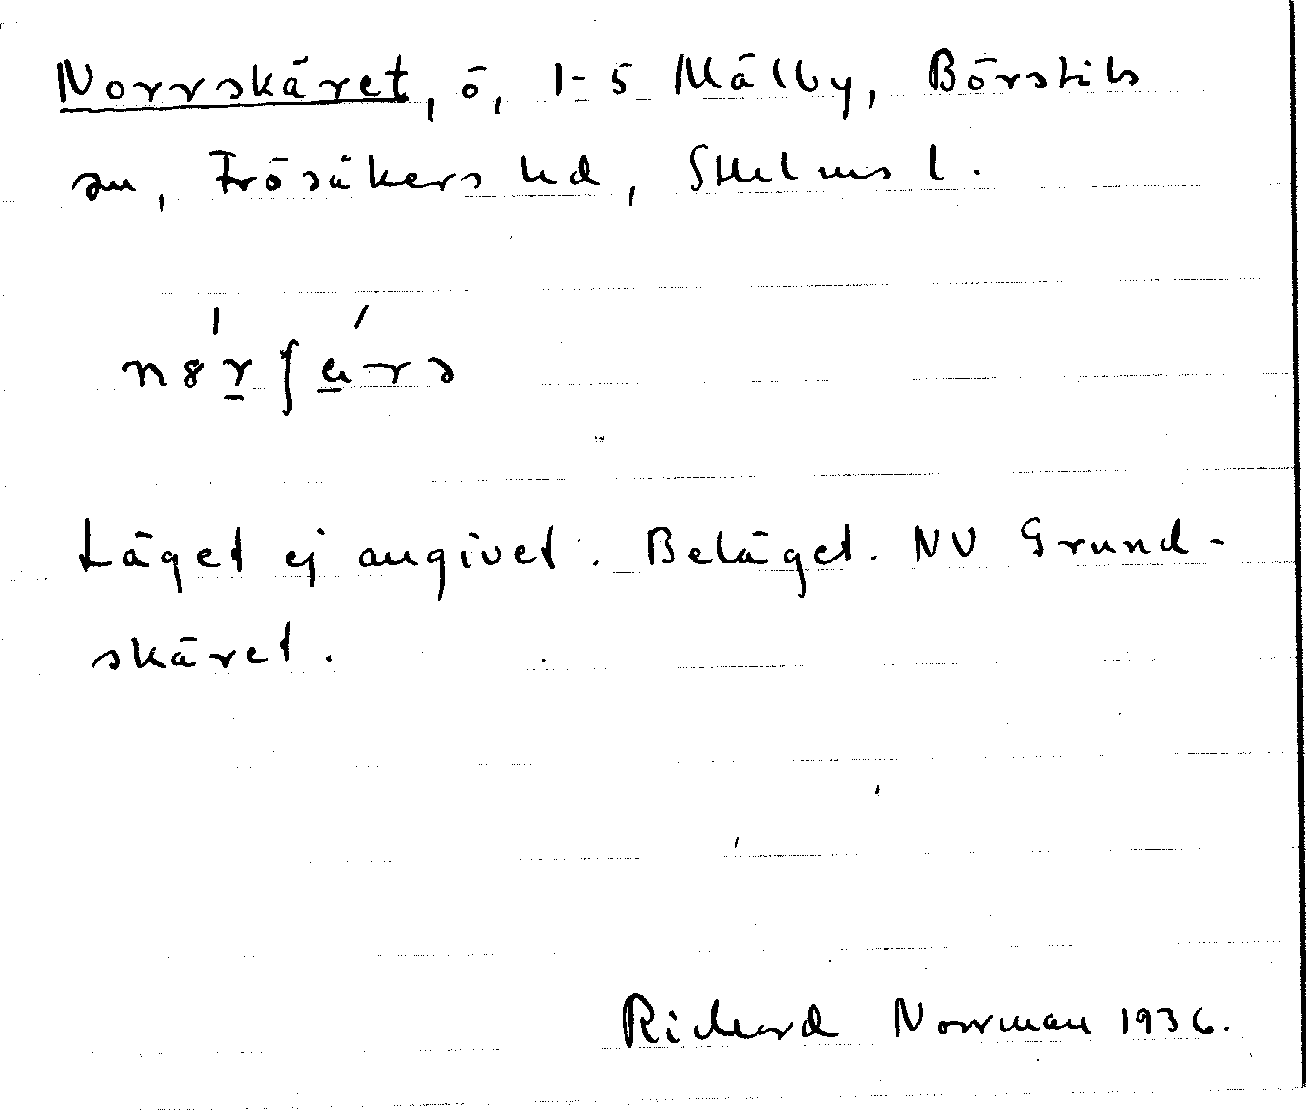 Norrskäret, ö, 1-5 Mälby, Börstils
sn, Frösåkers hd, Sthlms l.
Läget ej angivet. Beläget NV Grund-
skäret.
Richard Norrman 1936.